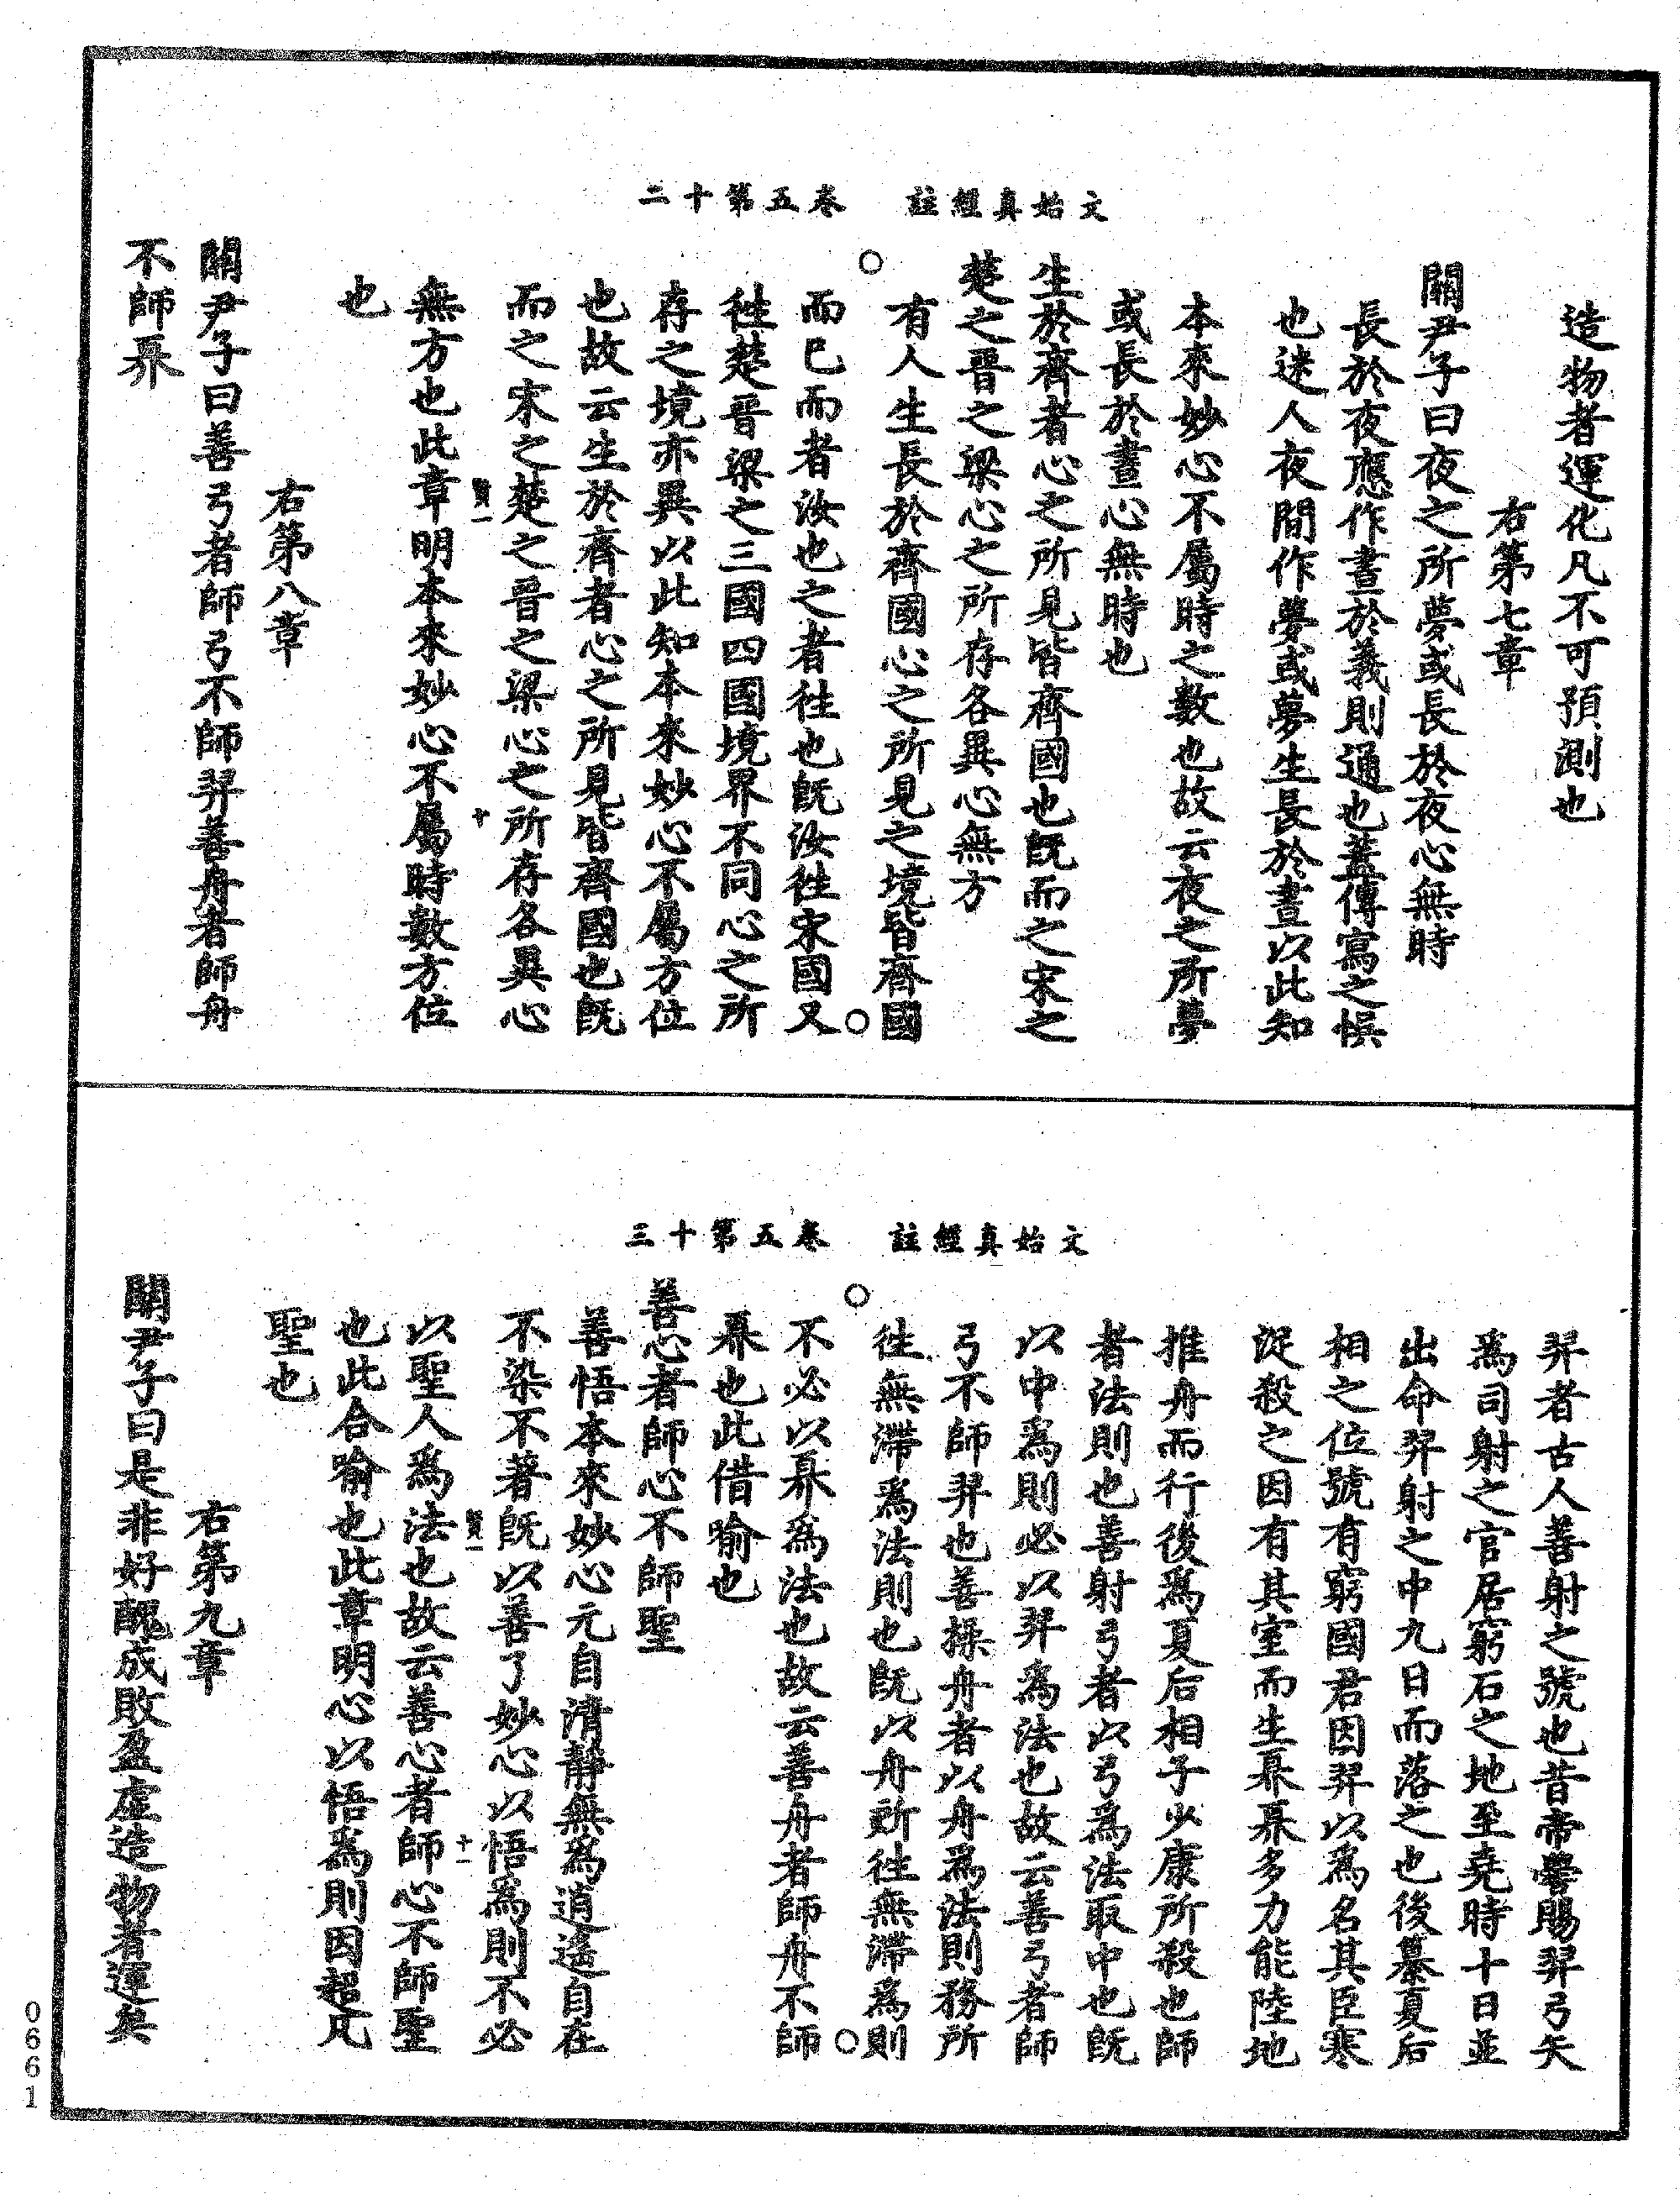 文始真經註　卷五第十二
造物者運化凡不可預測也
右第七章
關尹子曰夜之所夢或長於夜心無時
長於夜應作晝於義則通也蓋傳寫之悞
也迷人夜間作夢或夢生長於晝以此知
本來妙心不屬時之數也故云夜之所夢
或長於晝心無時也
生於齊者心之所見皆齊國也既而之宋之
楚之晉之梁心之所存各異心無方
有人生長於齊國心之所見之境皆齊國
而已而者汝也之者往也既汝往宋國又
往楚晉梁之三國四國境界不同心之所
存之境亦異以此知本來妙心不屬方位
也故云生於齊者心之所見皆齊國也既
而之宋之楚之晉之梁心之所存各異心
賢一　十
無方也此章明本來妙心不屬時數方位
也
右第八章
關尹子曰善弓者師弓不師羿善舟者師舟
不師奡
文始真經註　卷五第十三
羿者古人善射之號也昔帝嚳賜羿弓矢
為司射之官居窮石之地至堯時十日並
出命羿射之中九日而落之也後纂夏后
相之位號有窮國君因羿以為名其臣寒
浞殺之因有其室而生奡奡多力能陸地
推舟而行後為夏后相子少康所殺也師
者法則也善射弓者以弓為法取中也既
以中為則必以羿為法也故云善弓者師
弓不師羿也善操舟者以舟為法則務所
往無滯為法則也既以舟所往無滯為則
不必以奡為法也故云善舟者師舟不師
奡也此借喻也
善心者師心不師聖
善悟本來妙心元自清靜無為逍遙自在
不染不著既以善了妙心以悟為則不必
賢一　十一
以聖人為法也故云善心者師心不師聖
也此合喻也此章明心以悟為則因超凡
聖也
右第九章
關尹子曰是非好醜成敗盈虛造物者運矣
0661